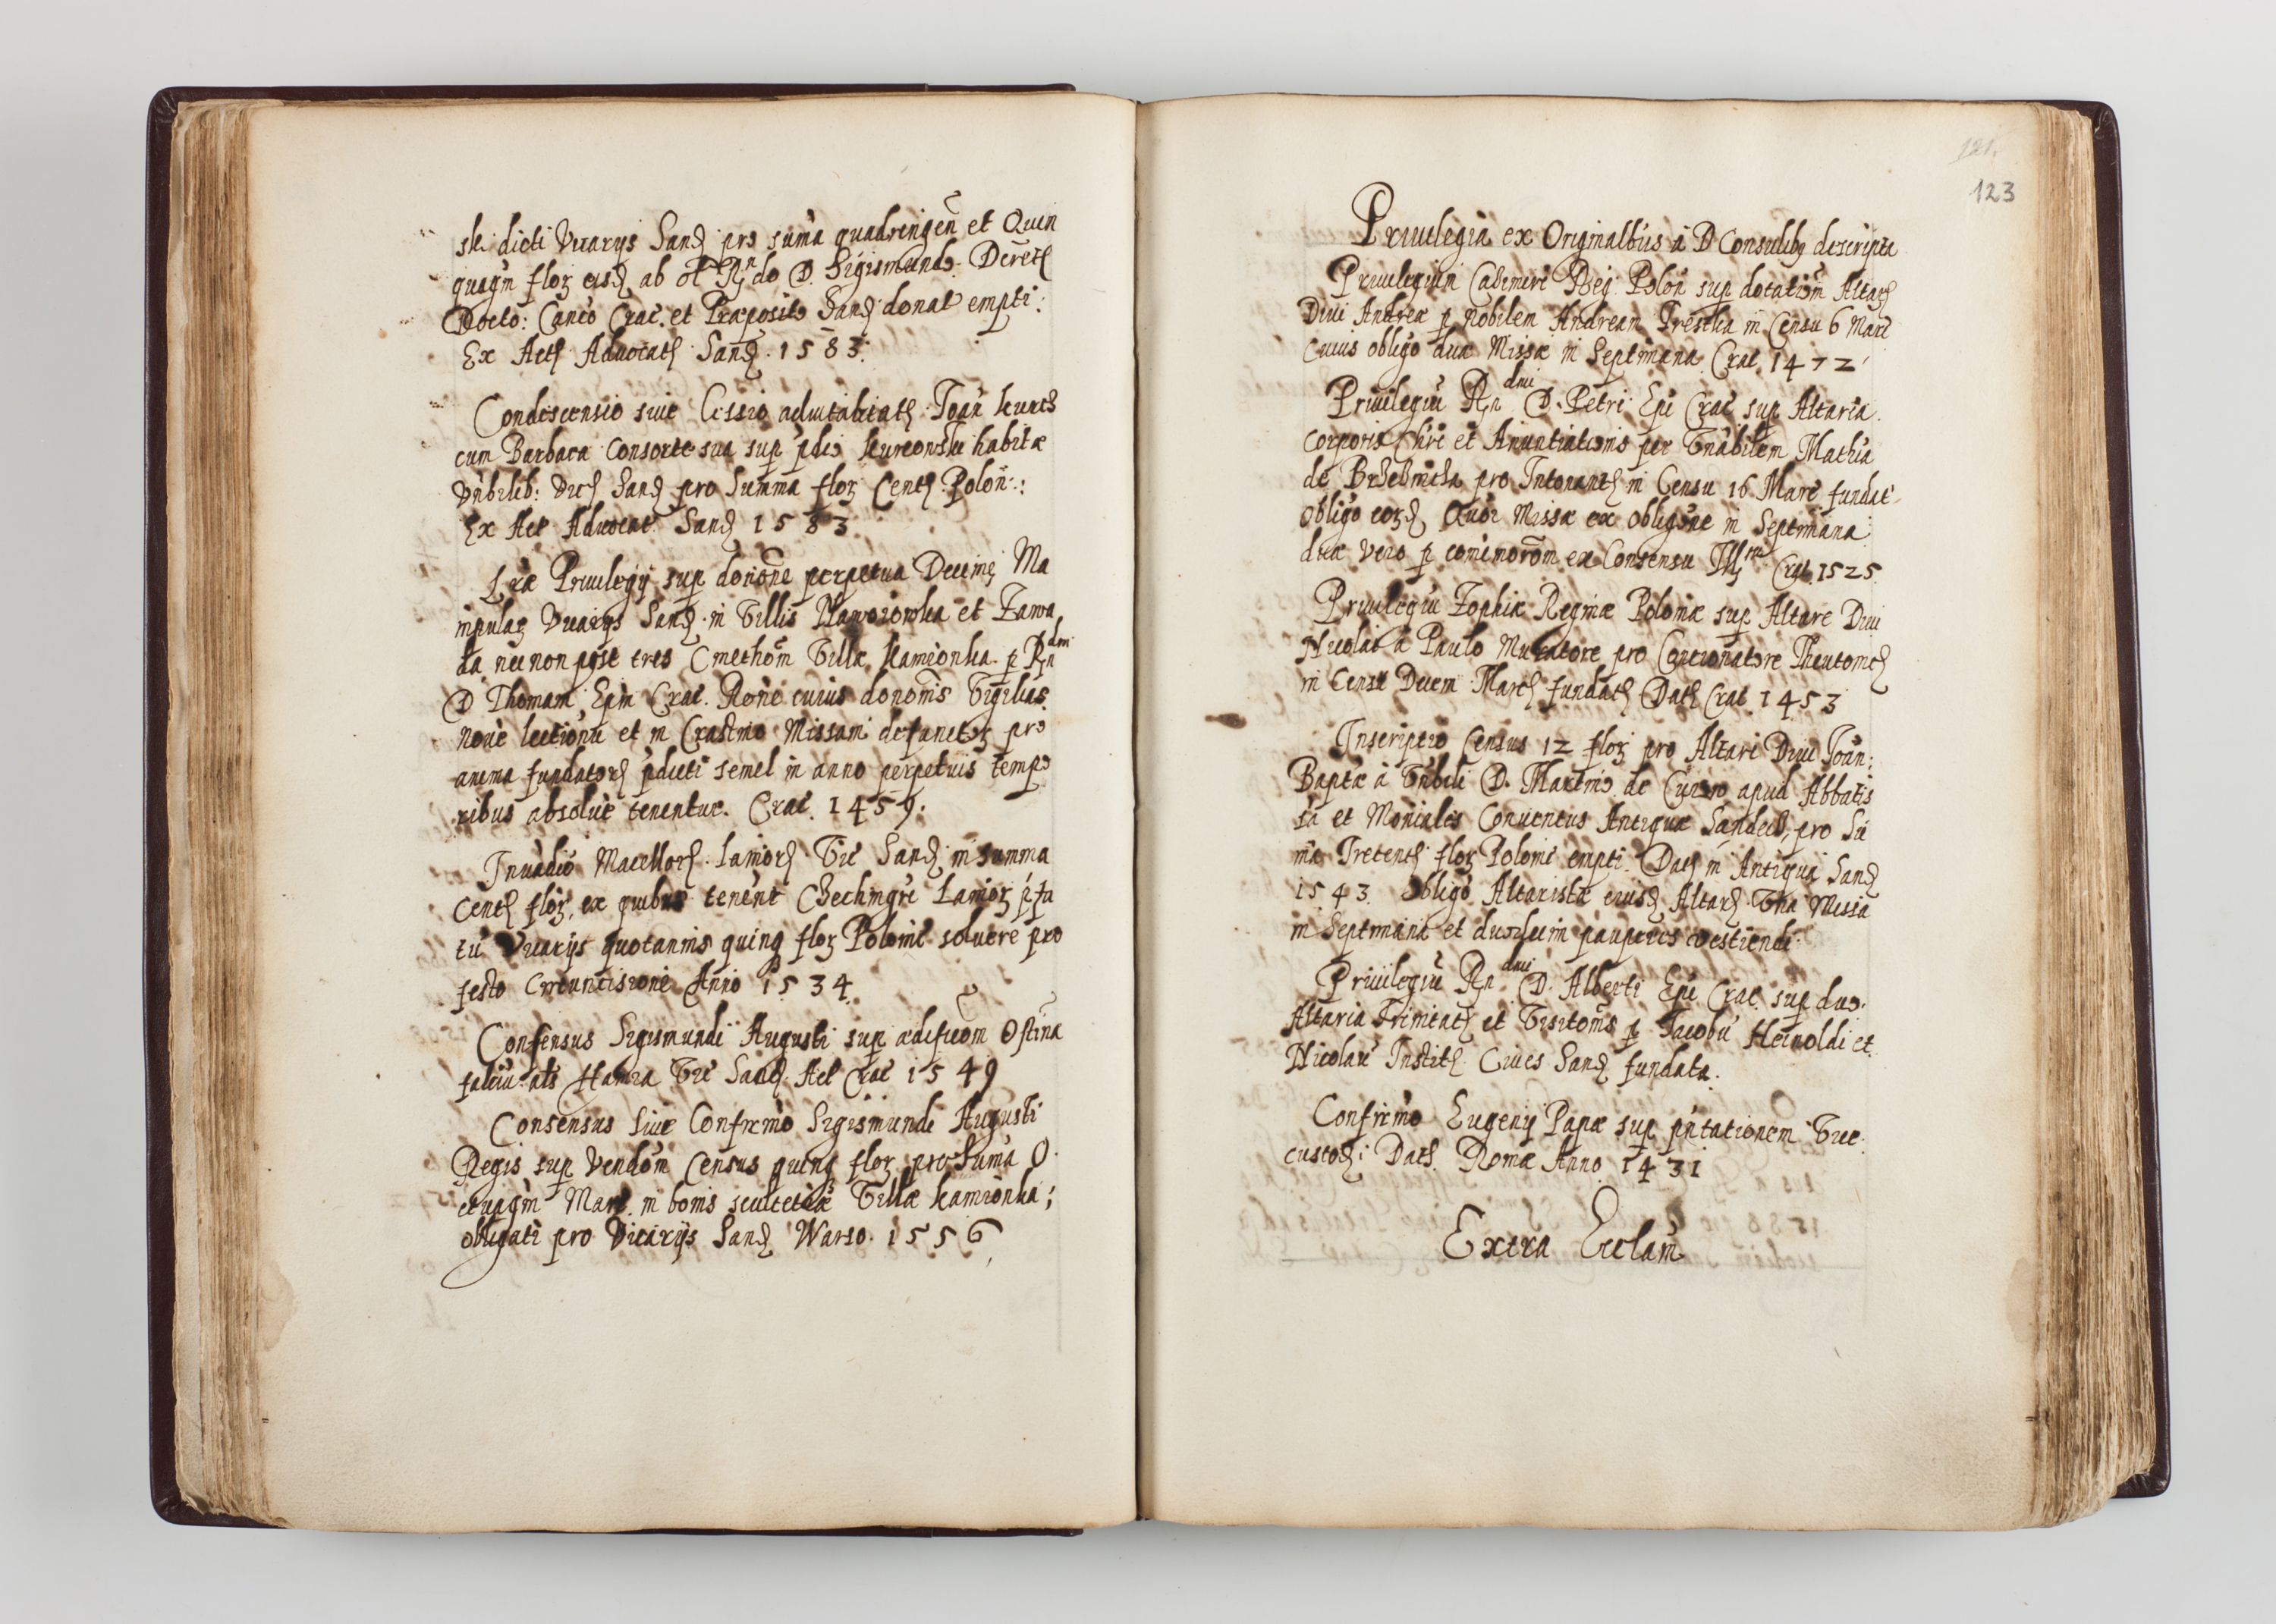 ski dicti Vicarijs Sand pro suma quadringen et Quin
quagin flor eisd ab ol Rndo D. Sigismundo Deret
Docto: Canco Crac. et Præposito Sand donat empti:
Ex Act Advocat Sand. 1583.
Condescensio sive Cessio advitalitat Joan kurcz
cum Barbara consorte sua sup pdio kurcowski habitæ
Vnbilib: Vic Sand pro Summa flor Cent Polon:
Ex Act Advocat Sand 1583
Lræ Privilegij sup donone perpetua Decimę Ma
nipular Vicarijs Sand in Villis Plawozonka et Zawa
da necnon post tres Cmethom Villæ kamionka p Rndm
D Thomam Epm Crac. Rone cuius dononis Vigilias
nove lectionu et in Crastino Missam defunctor pro
anima fundator pdicti semel in anno perpetuis tempo
ribus absolve tenentur. Crac. 1459.
Invadio Macellor Lanior Vic Sand in summa
Cent flor, ex quibus tenent Czechmgri Lanior
tu Vicarijs quotannis quinq flor Polonic solvere pro
festo Circuncisione Anno 1534.
Consensus Sigismundi Augusti sup ædificom Ostina
falciu als Hamra Vic Sand Act Crac 1549
Consensus Sive Confirmo Sigismundi Augusti
Regis sup Vendom Census quinq flor pro Suma O
ctuagin Marc. in bonis scultetiæ Villæ kamionka;
obligati pro Vicarijs Sand Warso. 1556
121.
123
Privilegia ex Originalbus a D Consulibq descripta
Privilegium Casimiri Reg Polon sup dotatiom Altar
Divi Andreæ p nobilem Andream Trestka in Censu 6 Marc
cuius obligo duæ Missæ in Septimana. Crac 1472
Privilegiu Rndmi D. Petri Epi Crac sup Altaria
Corporis Chri et Anuntiationis per Vnabilem Mathia
de Brzebnicza pro Intonant in Censu 16 Marc fundat
obligo eord Quor Missæ ex obligone in Septimana
duæ vero p cominorom ex Consensu Ill Crac 1525
Privilegiu Zophiæ Reginæ Poloniæ sup Altare Divi
Nicolai a Paulo Mulcatore pro Concionatore Theutonic
in Censu Decem Marc fundat Dat Crac 1453
Inscriptio Census 12 flor pro Altari Divi Joan:
Baptæ a Vnbili D. Martino de Curzo apud Abbatis
sa et Moniales Conventus Antiquæ Sandecz, pro Su
ma Trecent flor Polonic empti. Dat in Antiqua Sand
1543. Obligo Altaristæ eiusd Altar Vna Missa
in Septimana et duodecim pauperes vestiendi
Privilegiu Rndmi D. Alberti Epi Crac sup duo
Altaria Trinitat et Visitoms p Jacobu Heinoldi et
Nicolau Institk Cives Sand fundata.
Confirmo Eugenij Papæ sup pntationem Vice
custod: Dat Romæ Anno 1431
Extra Ecclam